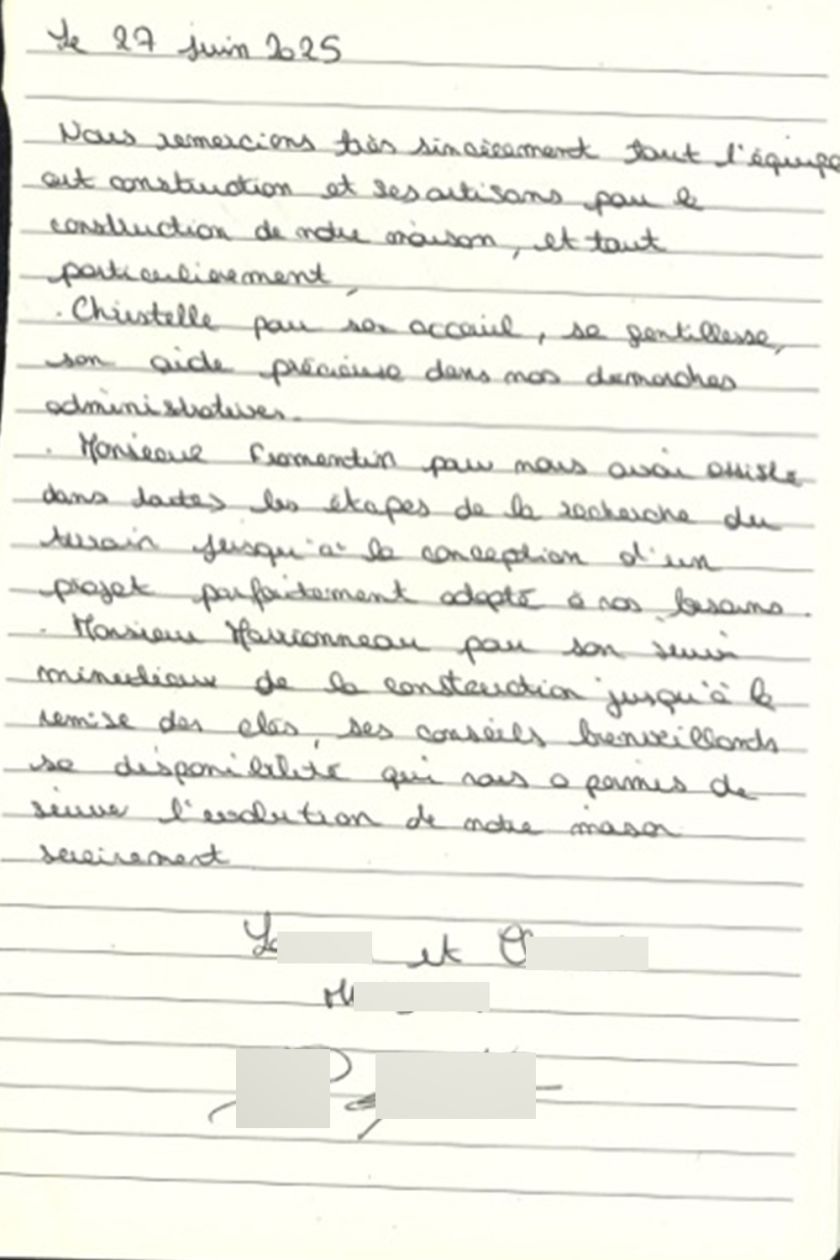 Le 27 Juin 2025
Nous remercions très sincèrement tout l'équipe
art construction et ses artisans pour la
construction de notre maison, et tout
particulierement
. Christelle pour son accueil, sa gentillesse,
son aide précieuse dans nos demarches
administratives.
. Monsieur Fromentin pour nous avoir assisté
dans toutes les étapes de la recherche du
terrain jusqu'à la conception d'un
projet parfaitement adapté à nos besoins.
. Monsieur Marionneau pour son suivi
minutieux de la construction jusqu'à la
remise des clés, ses conseils bienveillants
sa disponibilité qui nous a permis de
suivre l'evolution de notre maison
sereinement
et